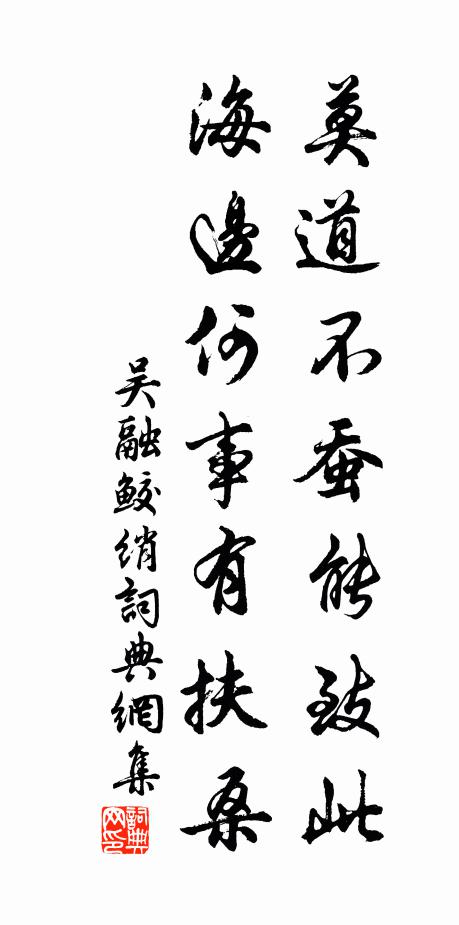 莫道不蚕能致此
海邊何事有扶桑
吴融鲛绡詞典網集
詞典网印